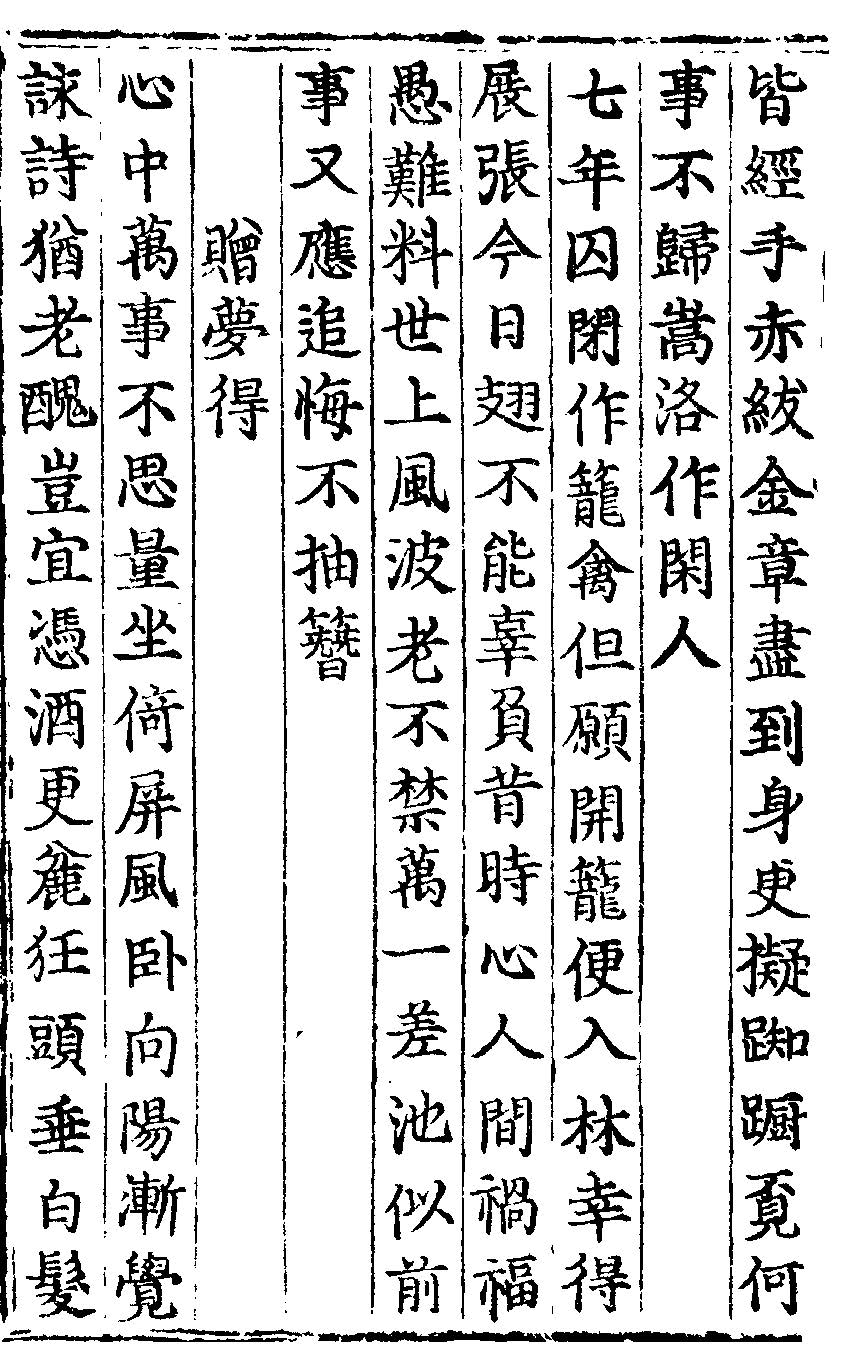 皆經手赤紱金章盡到身更擬踟蹰覓何
事不歸嵩洛作閑人
七年囚閉作籠禽但願開籠便入林幸得
展張今日翅不能辜負昔時心人間禍福
愚難料世上風波老不禁萬一差池似前
事又應追悔不抽簪
贈夢得
心中萬事不思量坐倚屏風卧向陽漸覺
詠詩猶老醜豈宜憑酒更麄狂頭垂白髮